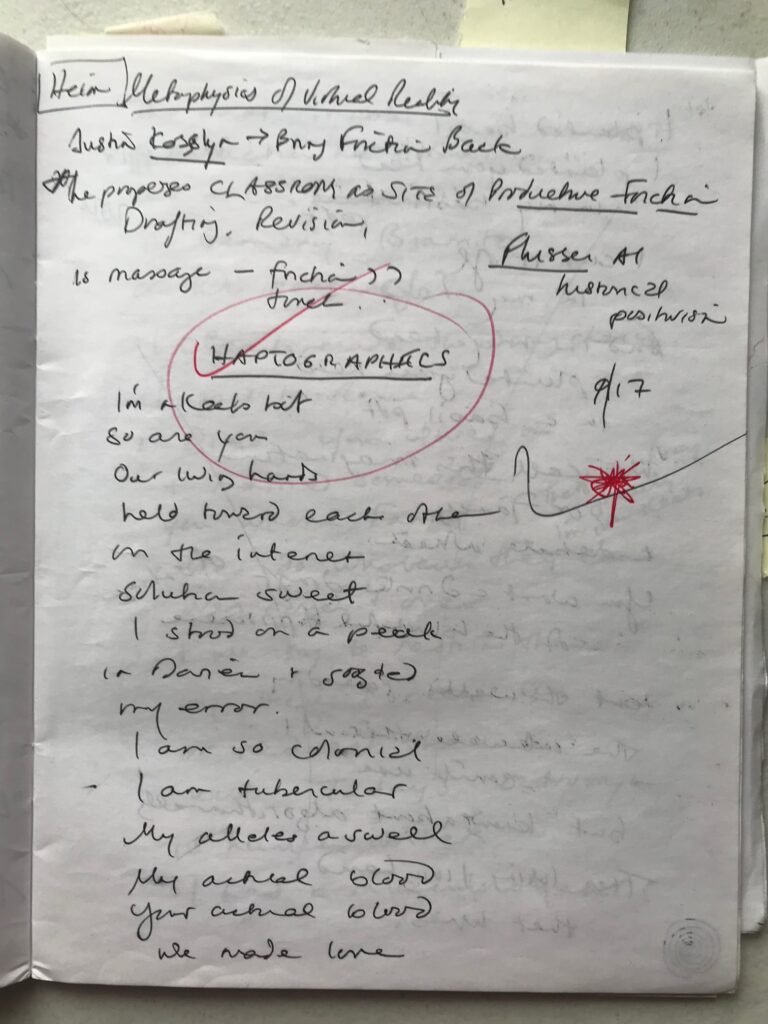 Heim Metaphysics of Virtual Reality
Austin Kosslyn → Bring Friction Back
He proposes CLASSROOM as SITE of Productive Friction
Drafting, Revision,
Is massage – friction ??
touch . . .
Flusser AI
historical
positivism
HAPTOGRAPHICS
9/17
I'm a Keats bot
so are you
Our living hands
held toward each other
on the internet
solution sweet
I stood on a peak
in Darien, +
my error.
I am so colonial
- I am tubercular
My alleles aswell
My actual blood
Your actual blood
We made love